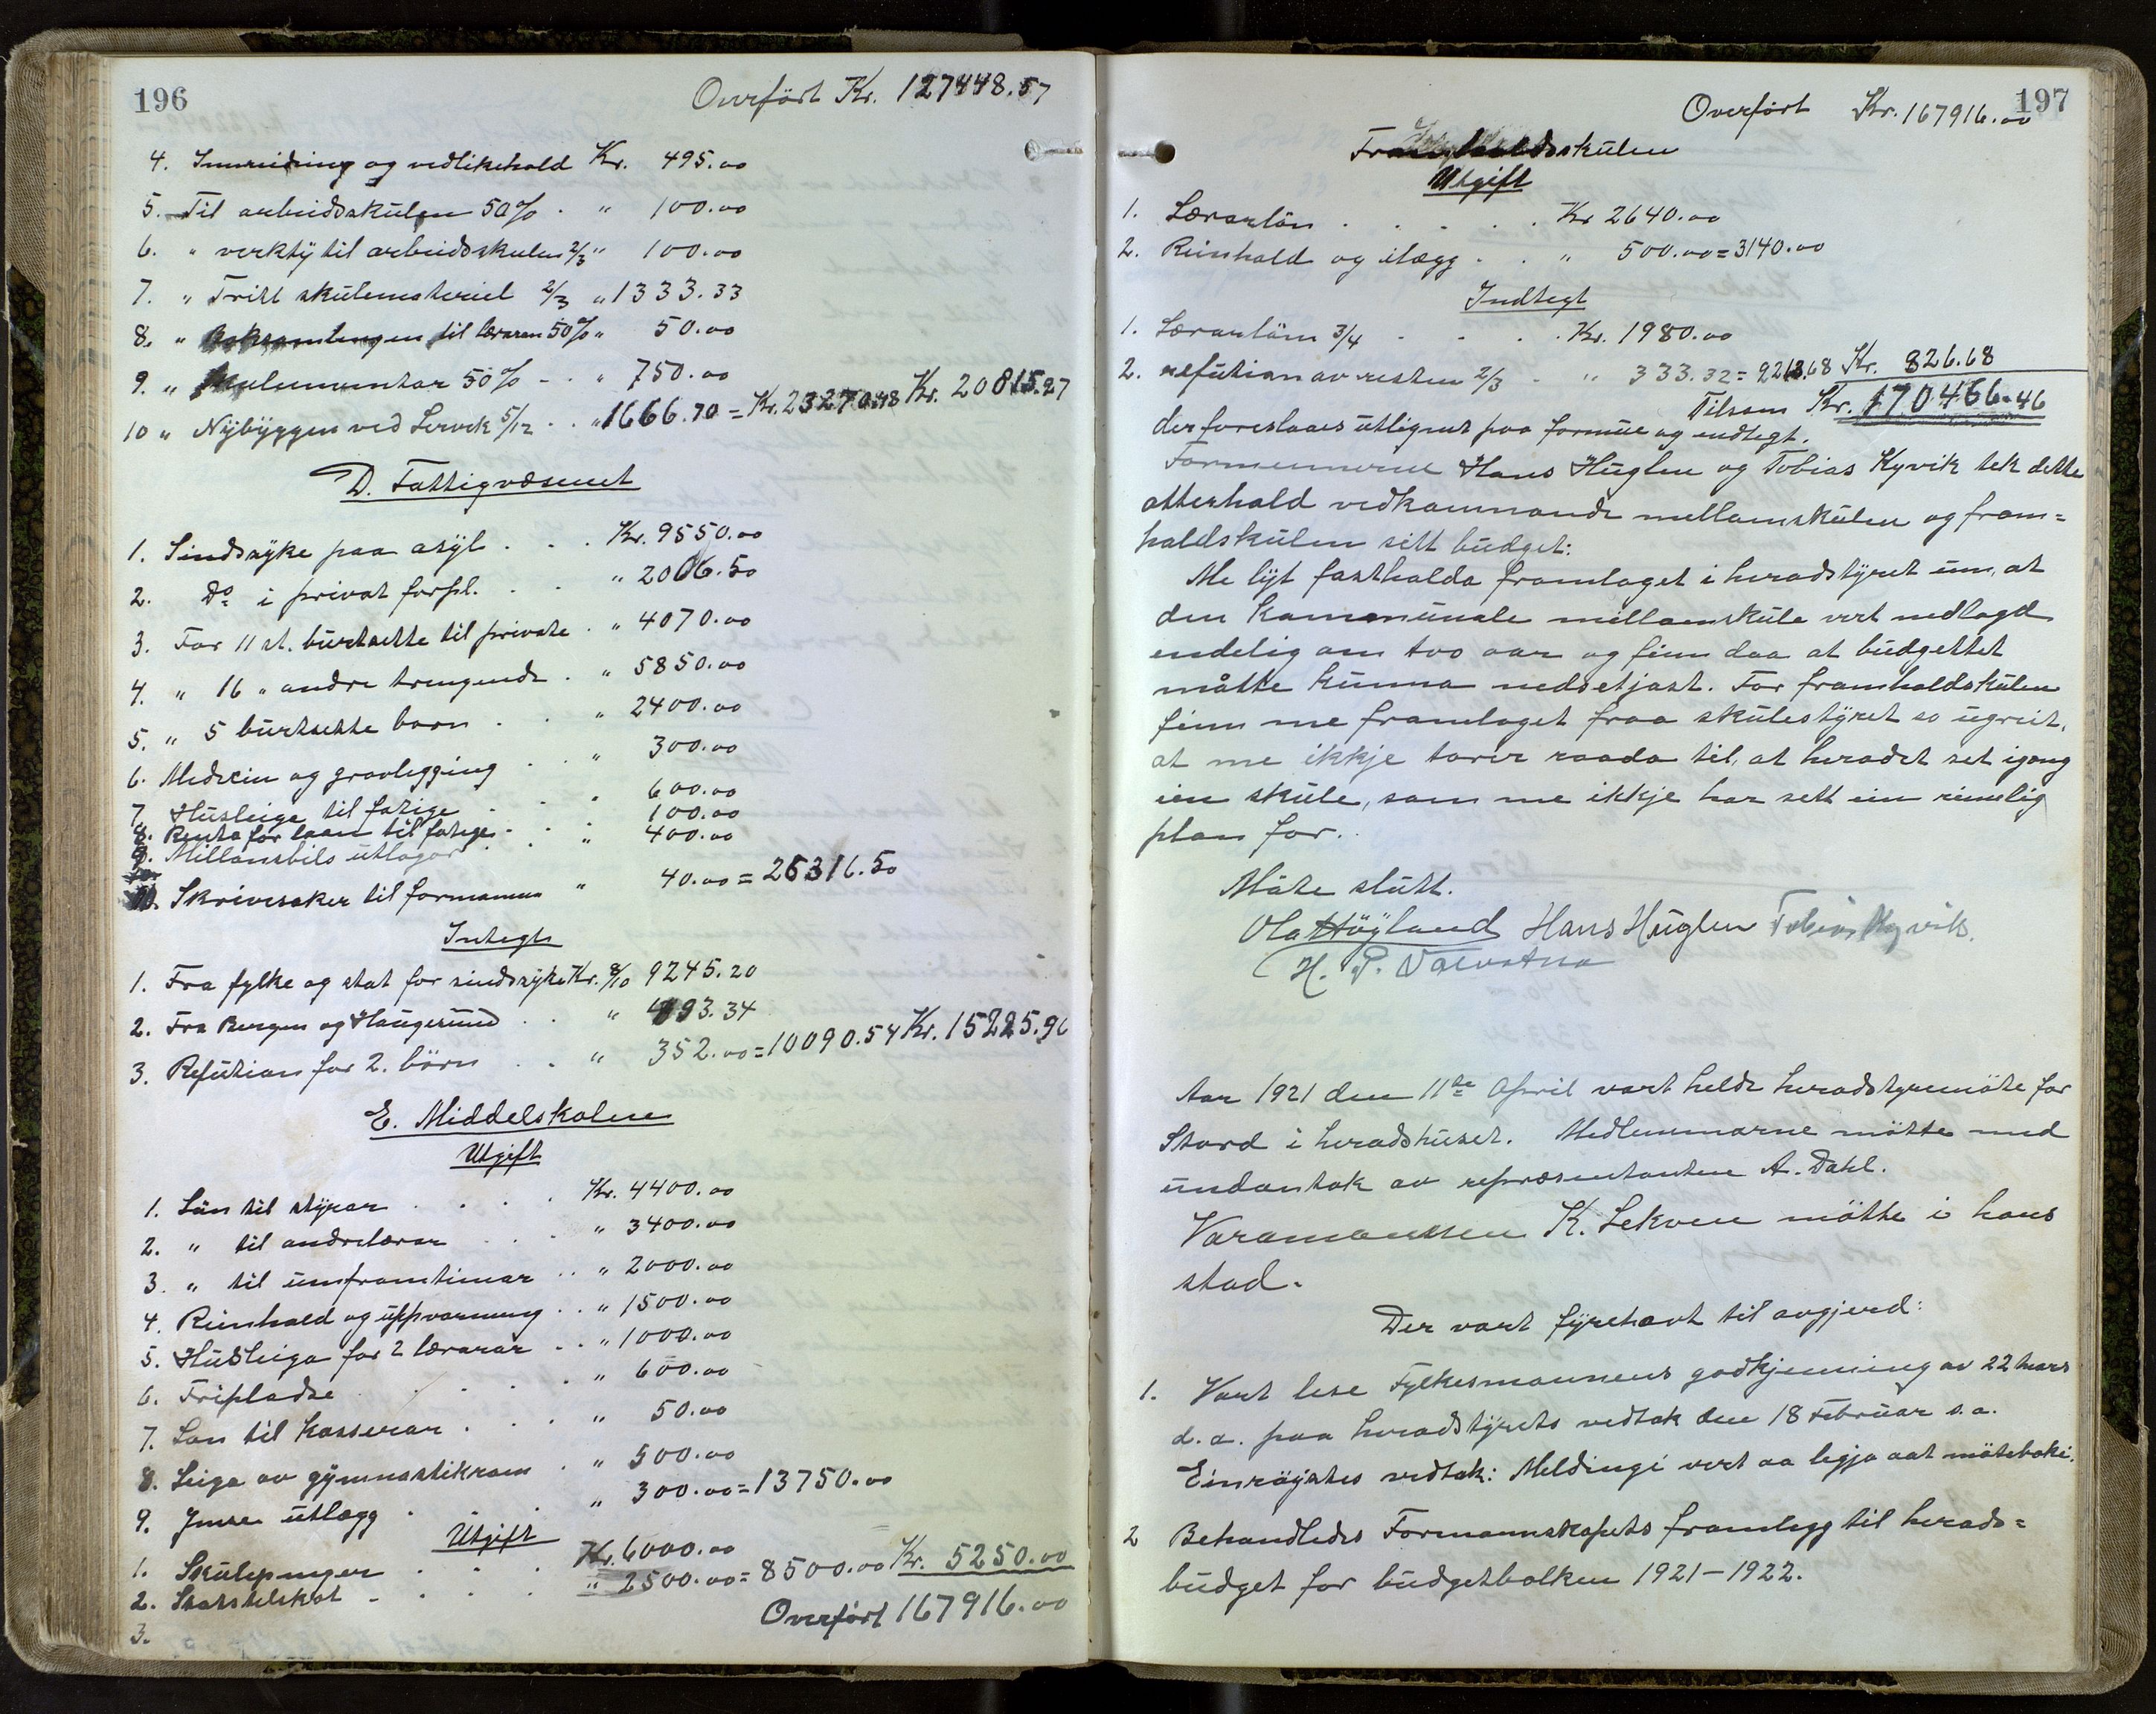 196
Overført Kr. 127448.57
4. Innreiding og vedlikehold Kr. 495.00
5. Til arbeidsskulen 50% . " 100.00
6. " verktÿ til arbeidsskulen 2/3 " 100.00
7. " Fritt skulemateriel 2/3 " 1333.33
8. " Boksamlingen til læraren 50% " 50.00
9. " Skuleinventar 50% - . " 750.00
10 " Nÿbÿggen ved Lervik 5/12 . . " 1666.70 = Kr. 23270.48 Kr. 20815.27
D. Fattigvæsenet
1. Sindsÿke paa asÿl . . . Kr. 9550.00
2. Do i privat forpl. . . " 2006.50
3. For 11 st. burtsette til private . " 4070.00
4. " 16 " andre trengende . " 5850.00
5. " 5 burtsette born . . " 2400.00
6. Medecin og gravlegging . . " 300.00
7. Husleige til fatige . . . 600.00
8. Renta for laan til fatige . . . 100.00
9. Millombils utlagor . . " 400.00
10. Skrivesaker til formannen " 40.00 = 25316.50
Integt
1. Fra fylke og stat for sindsyke Kr. 8/10 9245.20
2. Fra Bergen og Haugesund . . " 493.34
3. Refution for 2. börn . . " 352.00 = 10090.54 Kr. 15225.96
E. Middelskolen
Utgift
1. Lön til styrar . . . . Kr. 4400.00
2. " til andrelærar . . . " 3400.00
3. " til umframtimar . . " 2000.00
4. Reinhald og uppvarming . . " 1500.00
5. Husleiga for 2 lærarar . . " 1000.00
6. Fripladse . . . . " 600.00
7. Løn til Kasserar . . . " 50.00
8. Leiga av gÿmnastikrom . " 500.00
9. Ymse utlegg . . . " 300.00 = 13750.00
Utgift
1. Skulepenger . . . Kr. 6000.00
2. Statstilskot - . . . " 2500.00 = 8500.00 Kr. 5250.00
3.
Overført 167916.00
197
Overført Kr. 167916.00
Framhaldsskulen
Utgift
1. Lærarlön . . . . . Kr 2640.00
2. Reinhald og ilægg . . " 500.00 = 3140.00
Indtegt
1. Lærarlön 3/4 . . . . Kr. 1980.00
2. refution av resten 2/3 . " 333.32 = 2213.68 Kr. 826.68
Tilsam Kr. 170466.46
der foreslaaes utlignet paa formue og indtegt.
Formennerne Hans Huglen og Tobias Kyvik tek dette
atterhald vedkommande mellomskulen og fram=
haldskulen sitt budget:
Me lÿt fasthalda framlaget i heradstÿret um, at
den kommunale millomskule vert nedlagd
endelig om tvo aar og finn daa at budgettet
måtte kunna nedsetjast. For framhaldskulen
finn me framlaget fraa skulestÿret so ugreit,
at me ikkje torer raada til, at heradet set igong
ein skule, som me ikkje har sett ein rimelig
plan for.
Møte slutt.
Ola Höyland Hans Huglen Tobias Kyvik.
H. P. Valvatna
Aar 1921 den 11te April vart helde heradstyremöte for
Stord i heradshuset. Medlemmarne mötte med
undantak av repræsentanten A. Dahl.
Varamannen K. Lekven mötte i hans
stad.
Der vart fÿrehavt til avgjerd:
1. Vart lese Fylkesmannens godkjenning av 22 mars
d.a. paa heradstÿrets vedtak den 18 Februar s.a.
Einröystes vedtak: Meldingi vert aa legja aat möteboki.
2 Behandledes Formannskapets framlegg til herads=
budget for budgetbolken 1921-1922.